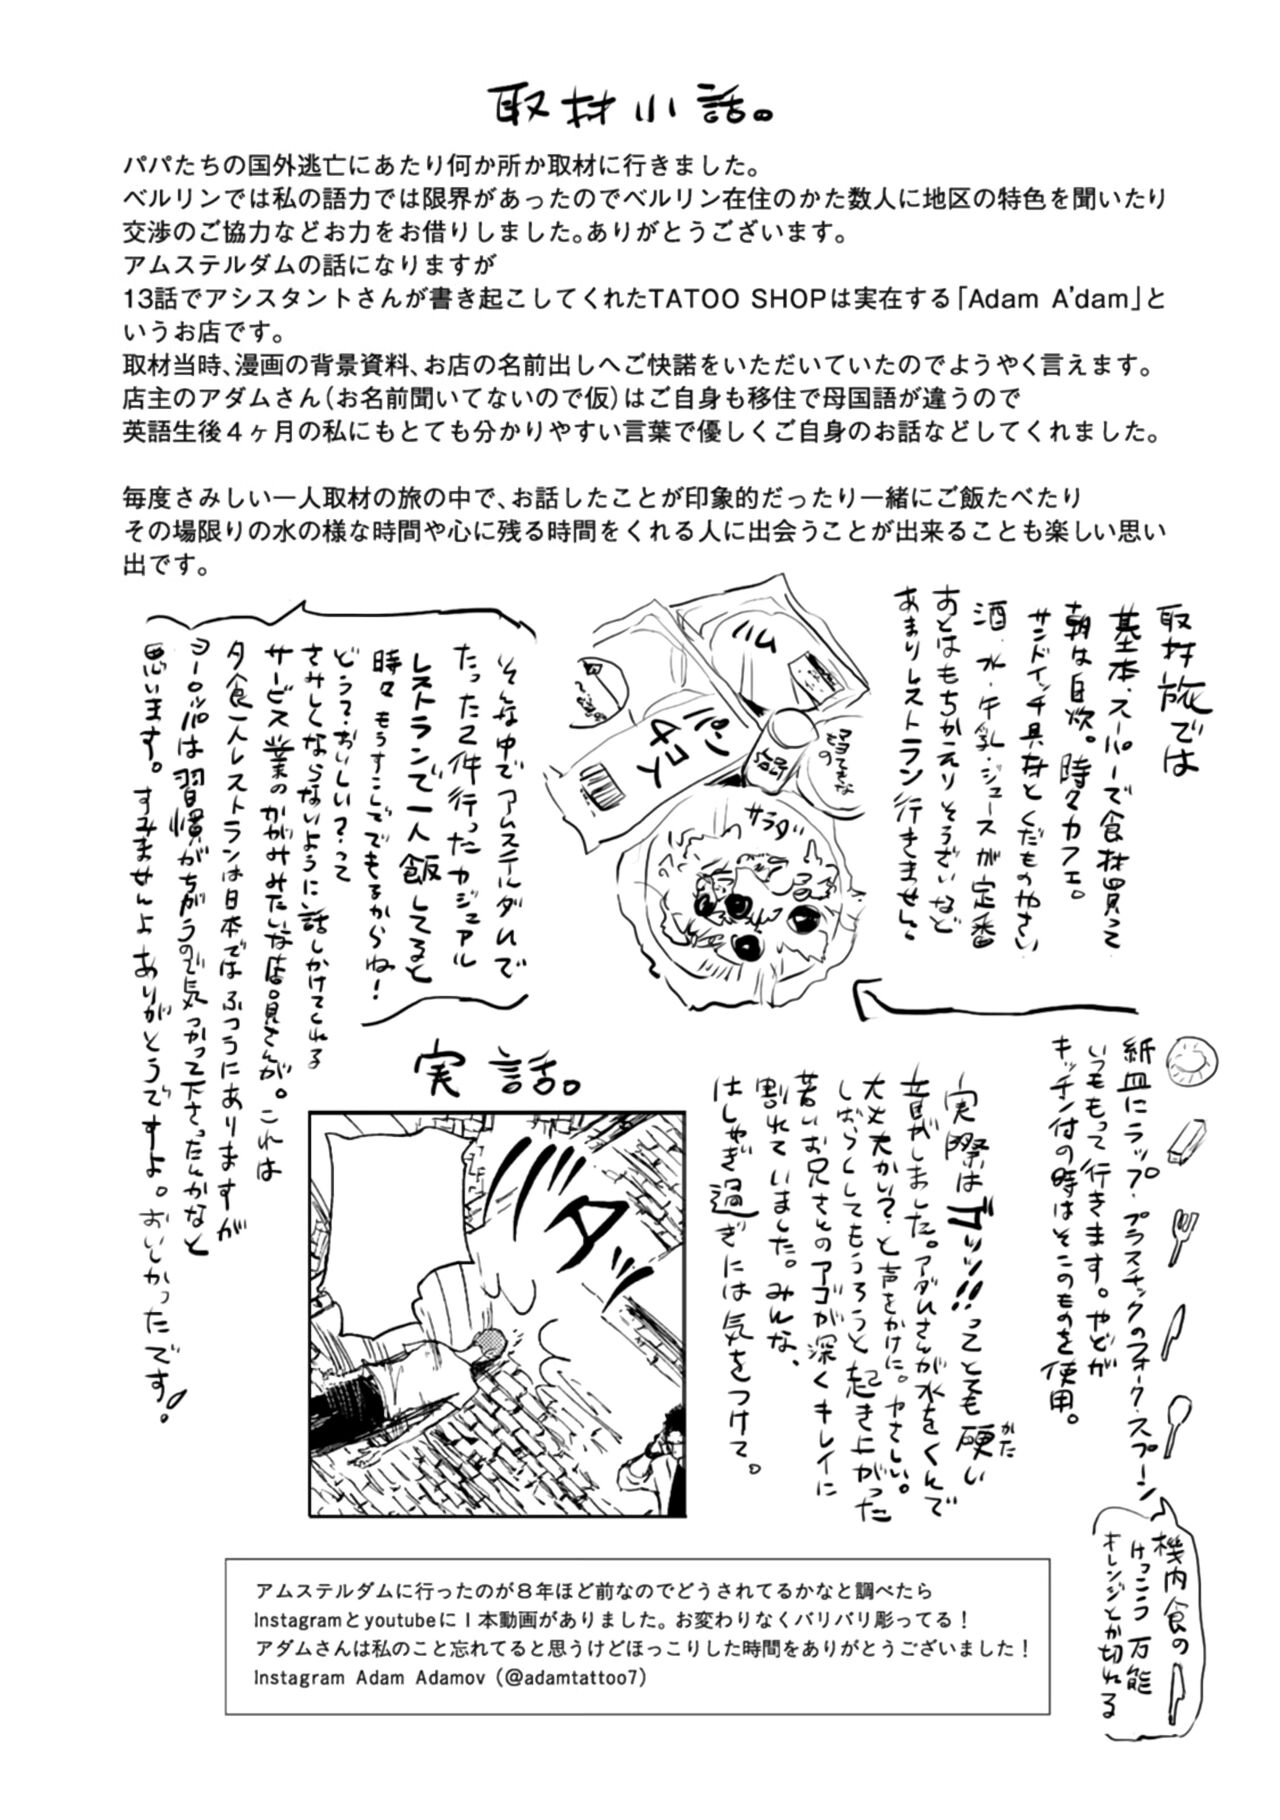 取材小話。
パパたちの国外逃亡にあたり何か所か取材に行きました。
ベルリンでは私の語力では限界があったのでベルリン在住のかた数人に地区の特色を聞いたり
交渉のご協力などお力をお借りしました。ありがとうございます。
アムステルダムの話になりますが
13話でアシスタントさんが書き起こしてくれたTATOO SHOPは実在する「Adam A'dam」と
いうお店です。
取材当時、漫画の背景資料、お店の名前出しへご快諾をいただいていたのでようやく言えます。
店主のアダムさん（お名前聞いてないので仮）はご自身も移住で母国語が違うので
英語生後４ヶ月の私にもとても分かりやすい言葉で優しくご自身のお話などしてくれました。
毎度さみしい一人取材の旅の中で、お話したことが印象的だったり一緒にご飯たべたり
その場限りの水の様な時間や心に残る時間をくれる人に出会うことが出来ることも楽しい思い
出です。
取材旅では
基本・スーパーで食材買って
朝は自炊。時々カフェ。
サンドイッチ具材とくだものやさい
酒・水・牛乳・ジュースが定番
あとはもちかえりそうざいなど
あまりレストラン行きません。
ハム
パン
4コ入
サラダ
そんな中でアムステルダムで
たった2件行ったカジュアル
レストランで一人飯してると
時々もうすこしででるからね！
どうて・おいしい？って
さみしくならないように話しかけてくれる
サービス業のかがみみたいな店員さんが。これは
夕食一人レストランは日本ではふつうにありますが
ヨーロッパは習慣がちがうので気つかって下さったんかなと
思います。すみませんよありがとうですよ。おいしかったです！
紙皿にラップ・プラスチックのフォーク・スプーン
いつももって行きます。やどが
キッチン付の時はそこのものを使用。
機内食の
けっこう万能
オレンジとか切れる
実話。
実際はゴッッ!!ってとても硬い
かた
音がしました。アダムさんが水をくんで
大丈夫かい？と声をかけに。やさしい。
しばらくしてもうろうと起き上がった
若いお兄さんのアゴが深くキレイに
割れていました。みんな、
はしゃぎ過ぎには気をつけて。
ダッ
アムステルダムに行ったのが８年ほど前なのでどうされてるかなと調べたら
Instagramとyoutubeに１本動画がありました。お変わりなくバリバリ彫ってる！
アダムさんは私のこと忘れてると思うけどほっこりした時間をありがとうございました！
Instagram Adam Adamov（@adamtattoo7）